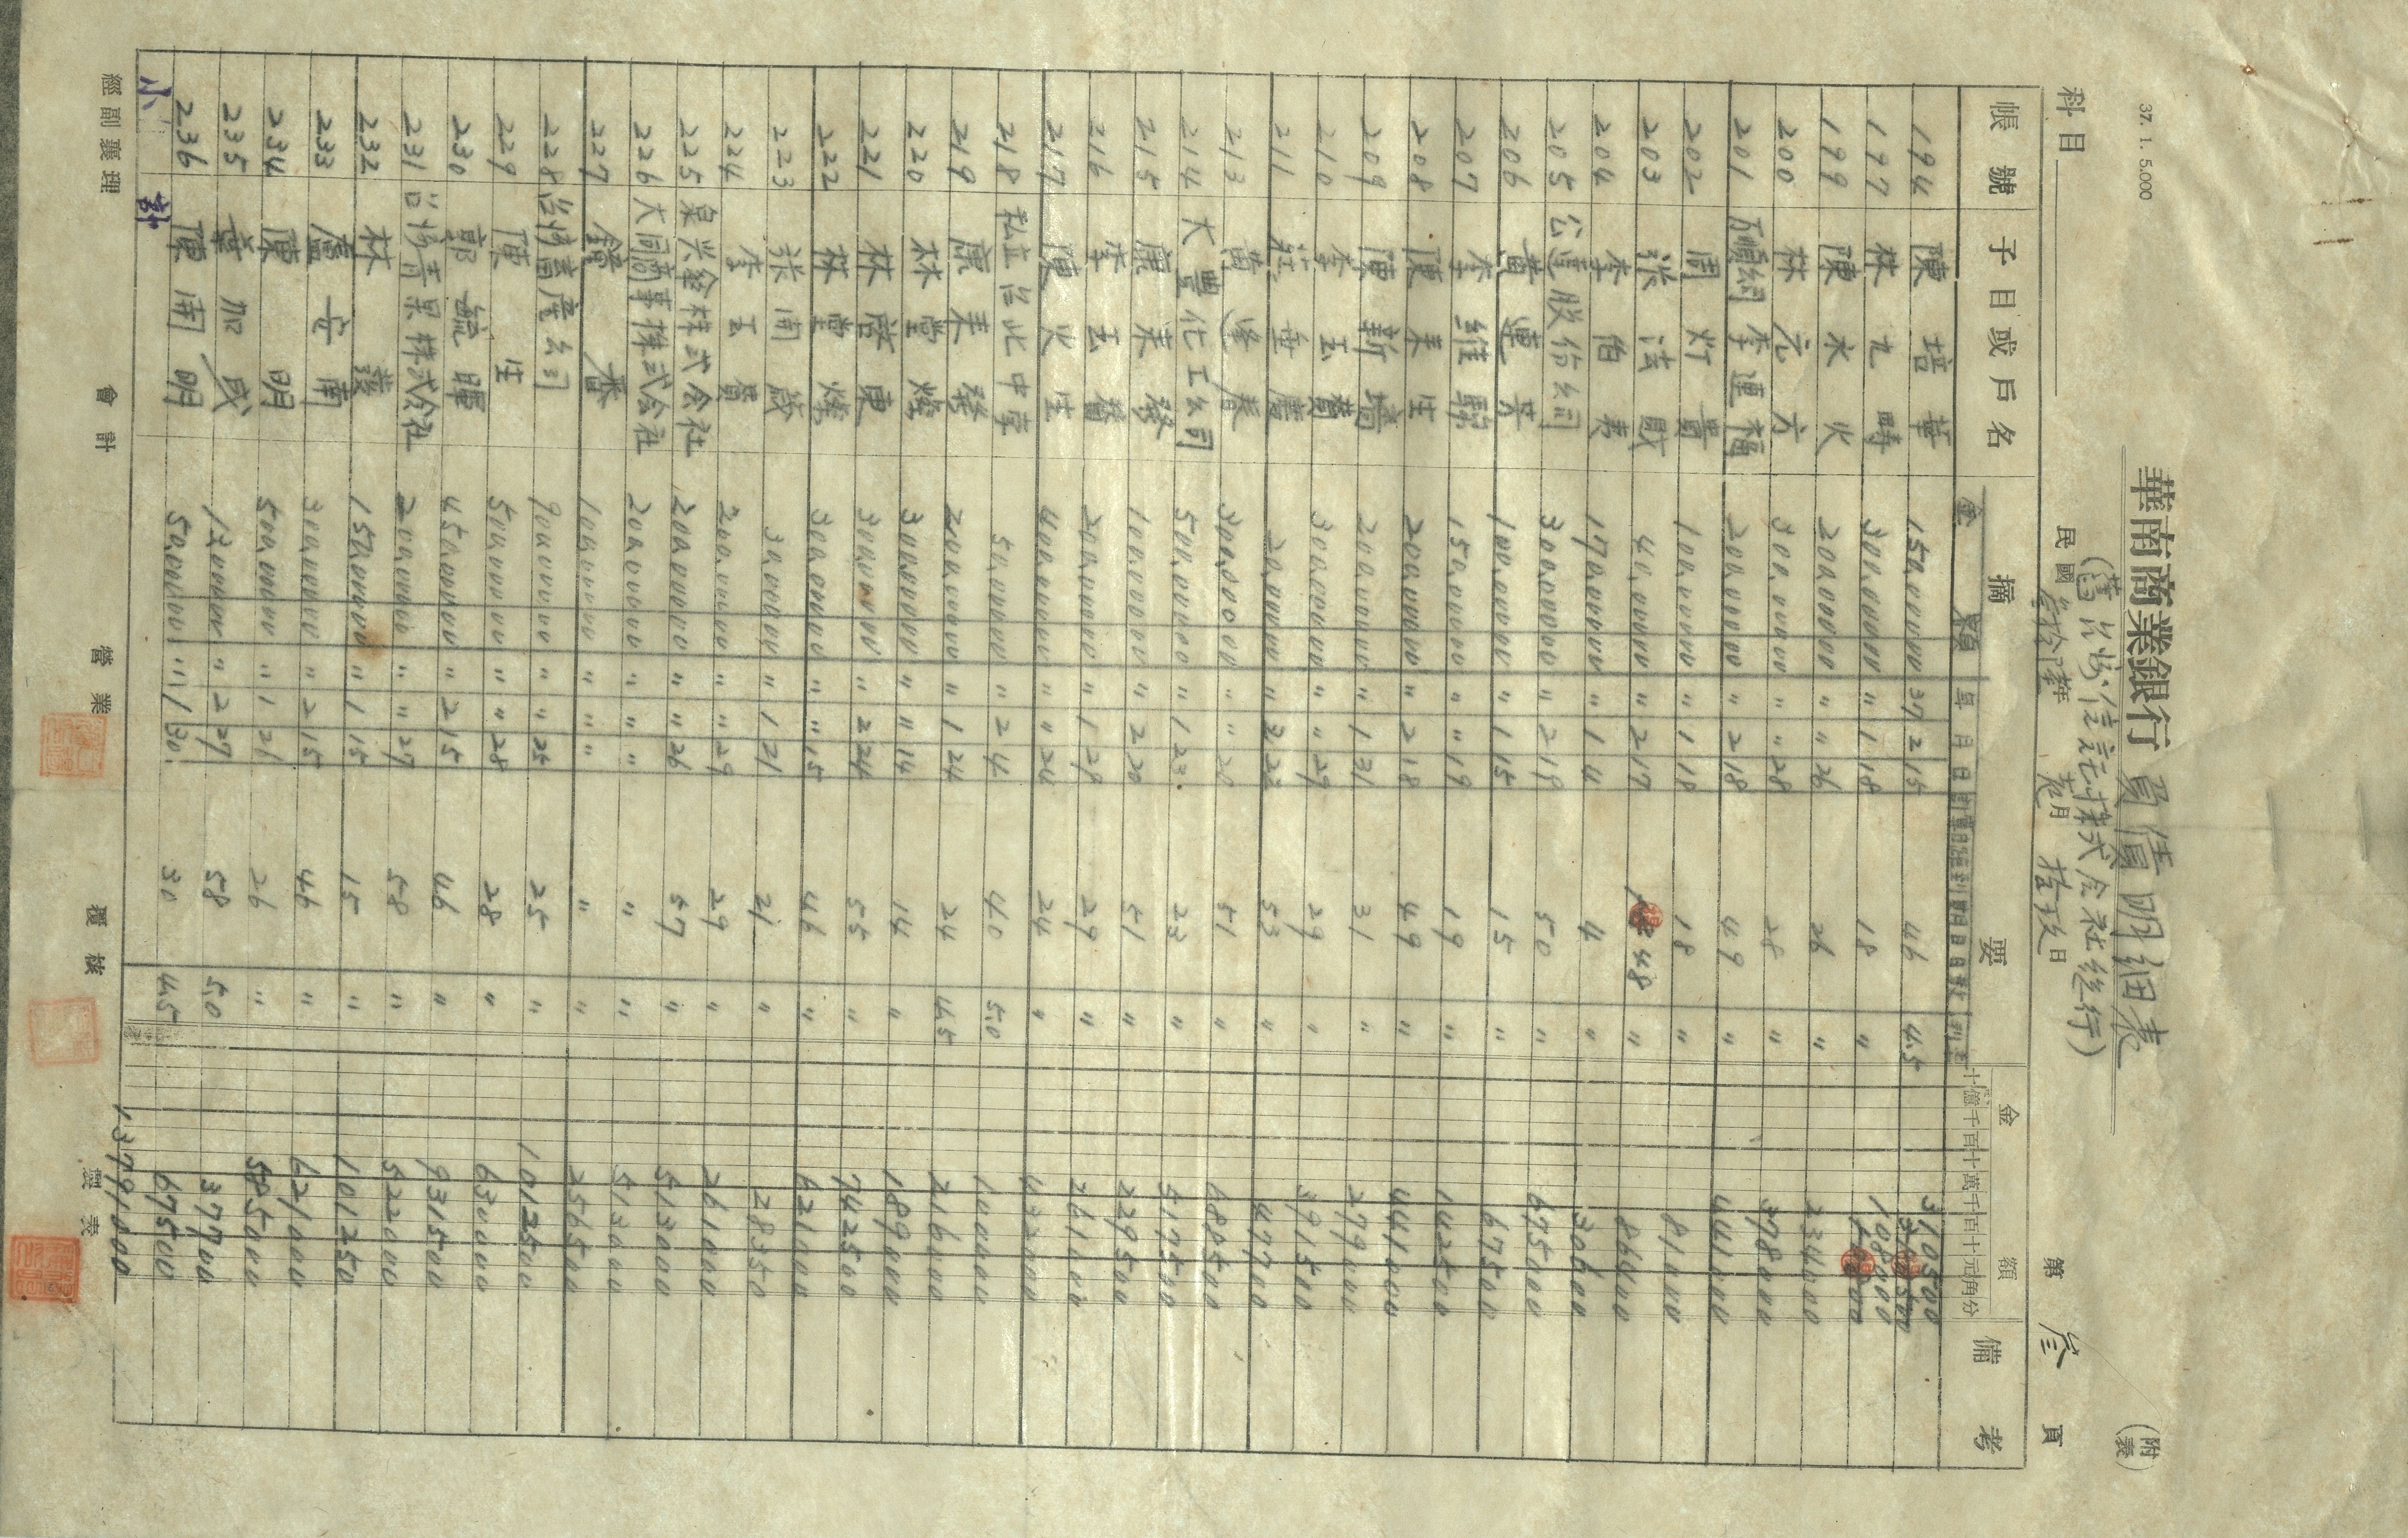 37. 1. 5.000
華南商業銀行 負債明細表
(附表)
(舊台灣信託株式会社總行)
科目
民國 叁拾陸年 拾弍月 拾玖日
第 叁 頁
帳號 子目或戶名 摘要 金額 備考
金額 年 月 日 利率
十億千百十萬千百十元角分
194 陳培華 150,000.00 37 2 15 46 4.5 310500
197 林九疇 300,000.00 〃 1 18 18 〃 108000
199 陳水火 200,000.00 〃 〃 26 26 〃 234000
200 林元六 300,000.00 〃 〃 28 28 〃 378000
201 李連福 200,000.00 〃 2 18 49 〃 441000
202 周灯貴 100,000.00 〃 1 18 18 〃 81000
203 張法財 40,000.00 〃 2 17 48 〃 86400
204 李伯表 170,000.00 〃 1 4 4 〃 30600
205 公道股份公司 300,000.00 〃 2 19 50 〃 675000
206 黃連芳 100,000.00 〃 1 15 15 〃 67500
207 李維駒 150,000.00 〃 〃 19 19 〃 142500
208 陳来生 200,000.00 〃 2 18 49 〃 441000
209 陳新墻 200,000.00 〃 1 31 31 〃 279000
210 李玉贊 300,000.00 〃 〃 29 29 〃 391500
211 莊垂慶 20,000.00 〃 2 22 53 〃 47700
213 黃逢春 300,000.00 〃 〃 20 51 〃 688500
214 大豐化工公司 500,000.00 〃 1 23 23 〃 517500
215 康来發 100,000.00 〃 2 20 51 〃 229500
216 李玉贊 200,000.00 〃 1 29 29 〃 261000
217 陳火生 400,000.00 〃 〃 24 24 〃 432000
218 私立台北中学 50,000.00 〃 2 4 40 5.0 100000
219 康来發 200,000.00 〃 1 24 24 4.5 216000
220 林堂燦 300,000.00 〃 〃 14 14 〃 189000
221 林啓東 300,000.00 〃 2 24 55 〃 742500
222 林堂燦 300,000.00 〃 〃 15 46 〃 621000
223 張開啟 30,000.00 〃 1 21 21 〃 28350
224 李玉贊 200,000.00 〃 〃 29 29 〃 261000
225 泉兴鉎株式会社 200,000.00 〃 〃 26 57 〃 513000
226 大同商事株式会社 200,000.00 〃 〃 〃 〃 〃 513000
227 鍾番 100,000.00 〃 〃 〃 〃 〃 256500
228 台湾畜産公司 900,000.00 〃 〃 25 25 〃 1012500
229 陳生 500,000.00 〃 〃 28 28 〃 630000
230 郭毓暉 450,000.00 〃 2 15 46 〃 931500
231 台湾青果株式会社 200,000.00 〃 〃 27 58 〃 522000
232 林發 150,000.00 〃 1 15 15 〃 101250
233 盧安南 300,000.00 〃 2 15 46 〃 621000
234 陳明 500,000.00 〃 1 26 26 〃 585000
235 葉加成 13,000.00 〃 2 27 58 5.0 37700
236 陳開明 50,000.00 〃 1 30 30 4.5 67500
小計 1,3791000
經副襄理 會計 營業 覆核 製表